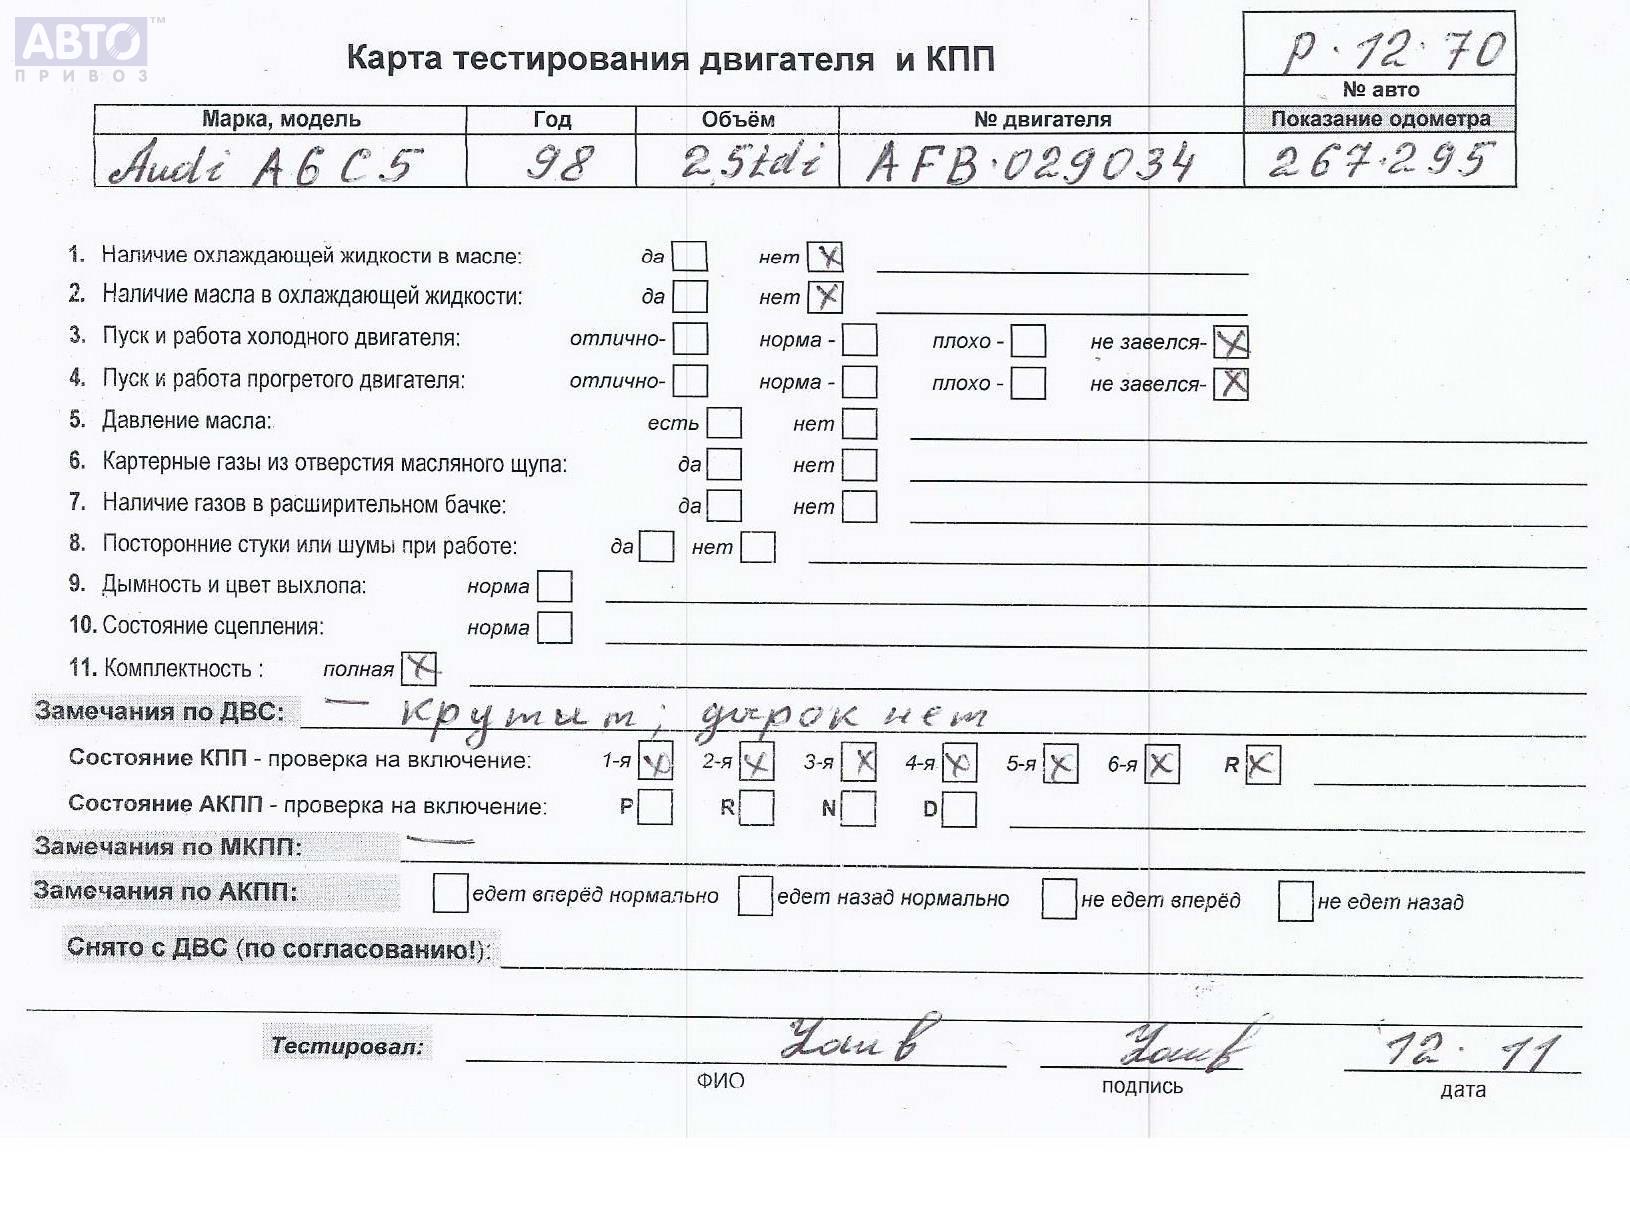 АВТО™
ПРИВОЗ
Карта тестирования двигателя и КПП
р·12·70
№ авто
Марка, модель Год Объём № двигателя Показание одометра
Audi A6 C5 98 2,5tdi AFB·029034 267·295
1. Наличие охлаждающей жидкости в масле: да нет X
2. Наличие масла в охлаждающей жидкости: да нет X
3. Пуск и работа холодного двигателя: отлично- норма - плохо - не завелся- X
4. Пуск и работа прогретого двигателя: отлично- норма - плохо - не завелся- X
5. Давление масла: есть нет
6. Картерные газы из отверстия масляного щупа: да нет
7. Наличие газов в расширительном бачке: да нет
8. Посторонние стуки или шумы при работе: да нет
9. Дымность и цвет выхлопа: норма
10. Состояние сцепления: норма
11. Комплектность : полная X
Замечания по ДВС: — крутит; дырок нет
Состояние КПП - проверка на включение: 1-я X 2-я X 3-я X 4-я X 5-я X 6-я X R X
Состояние АКПП - проверка на включение: P R N D
Замечания по МКПП: —
Замечания по АКПП: едет вперёд нормально едет назад нормально не едет вперёд не едет назад
Снято с ДВС (по согласованию!):
Тестировал: 12·11
ФИО подпись дата